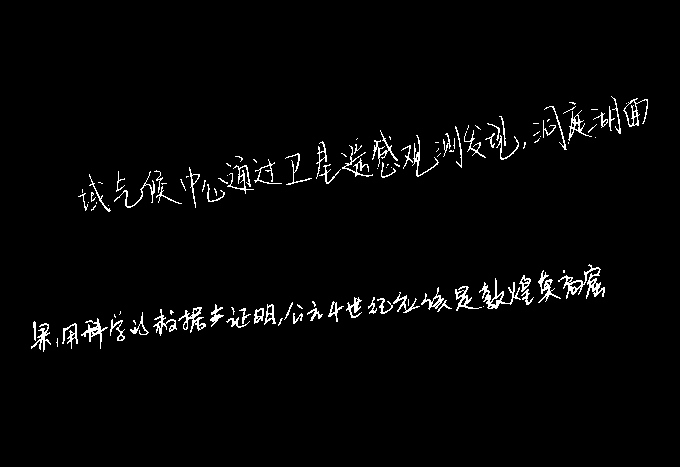 域气候中心通过卫星遥感观测发现，洞庭湖面
果，用科学的数据去证明，公元4世纪应该是敦煌莫高窟